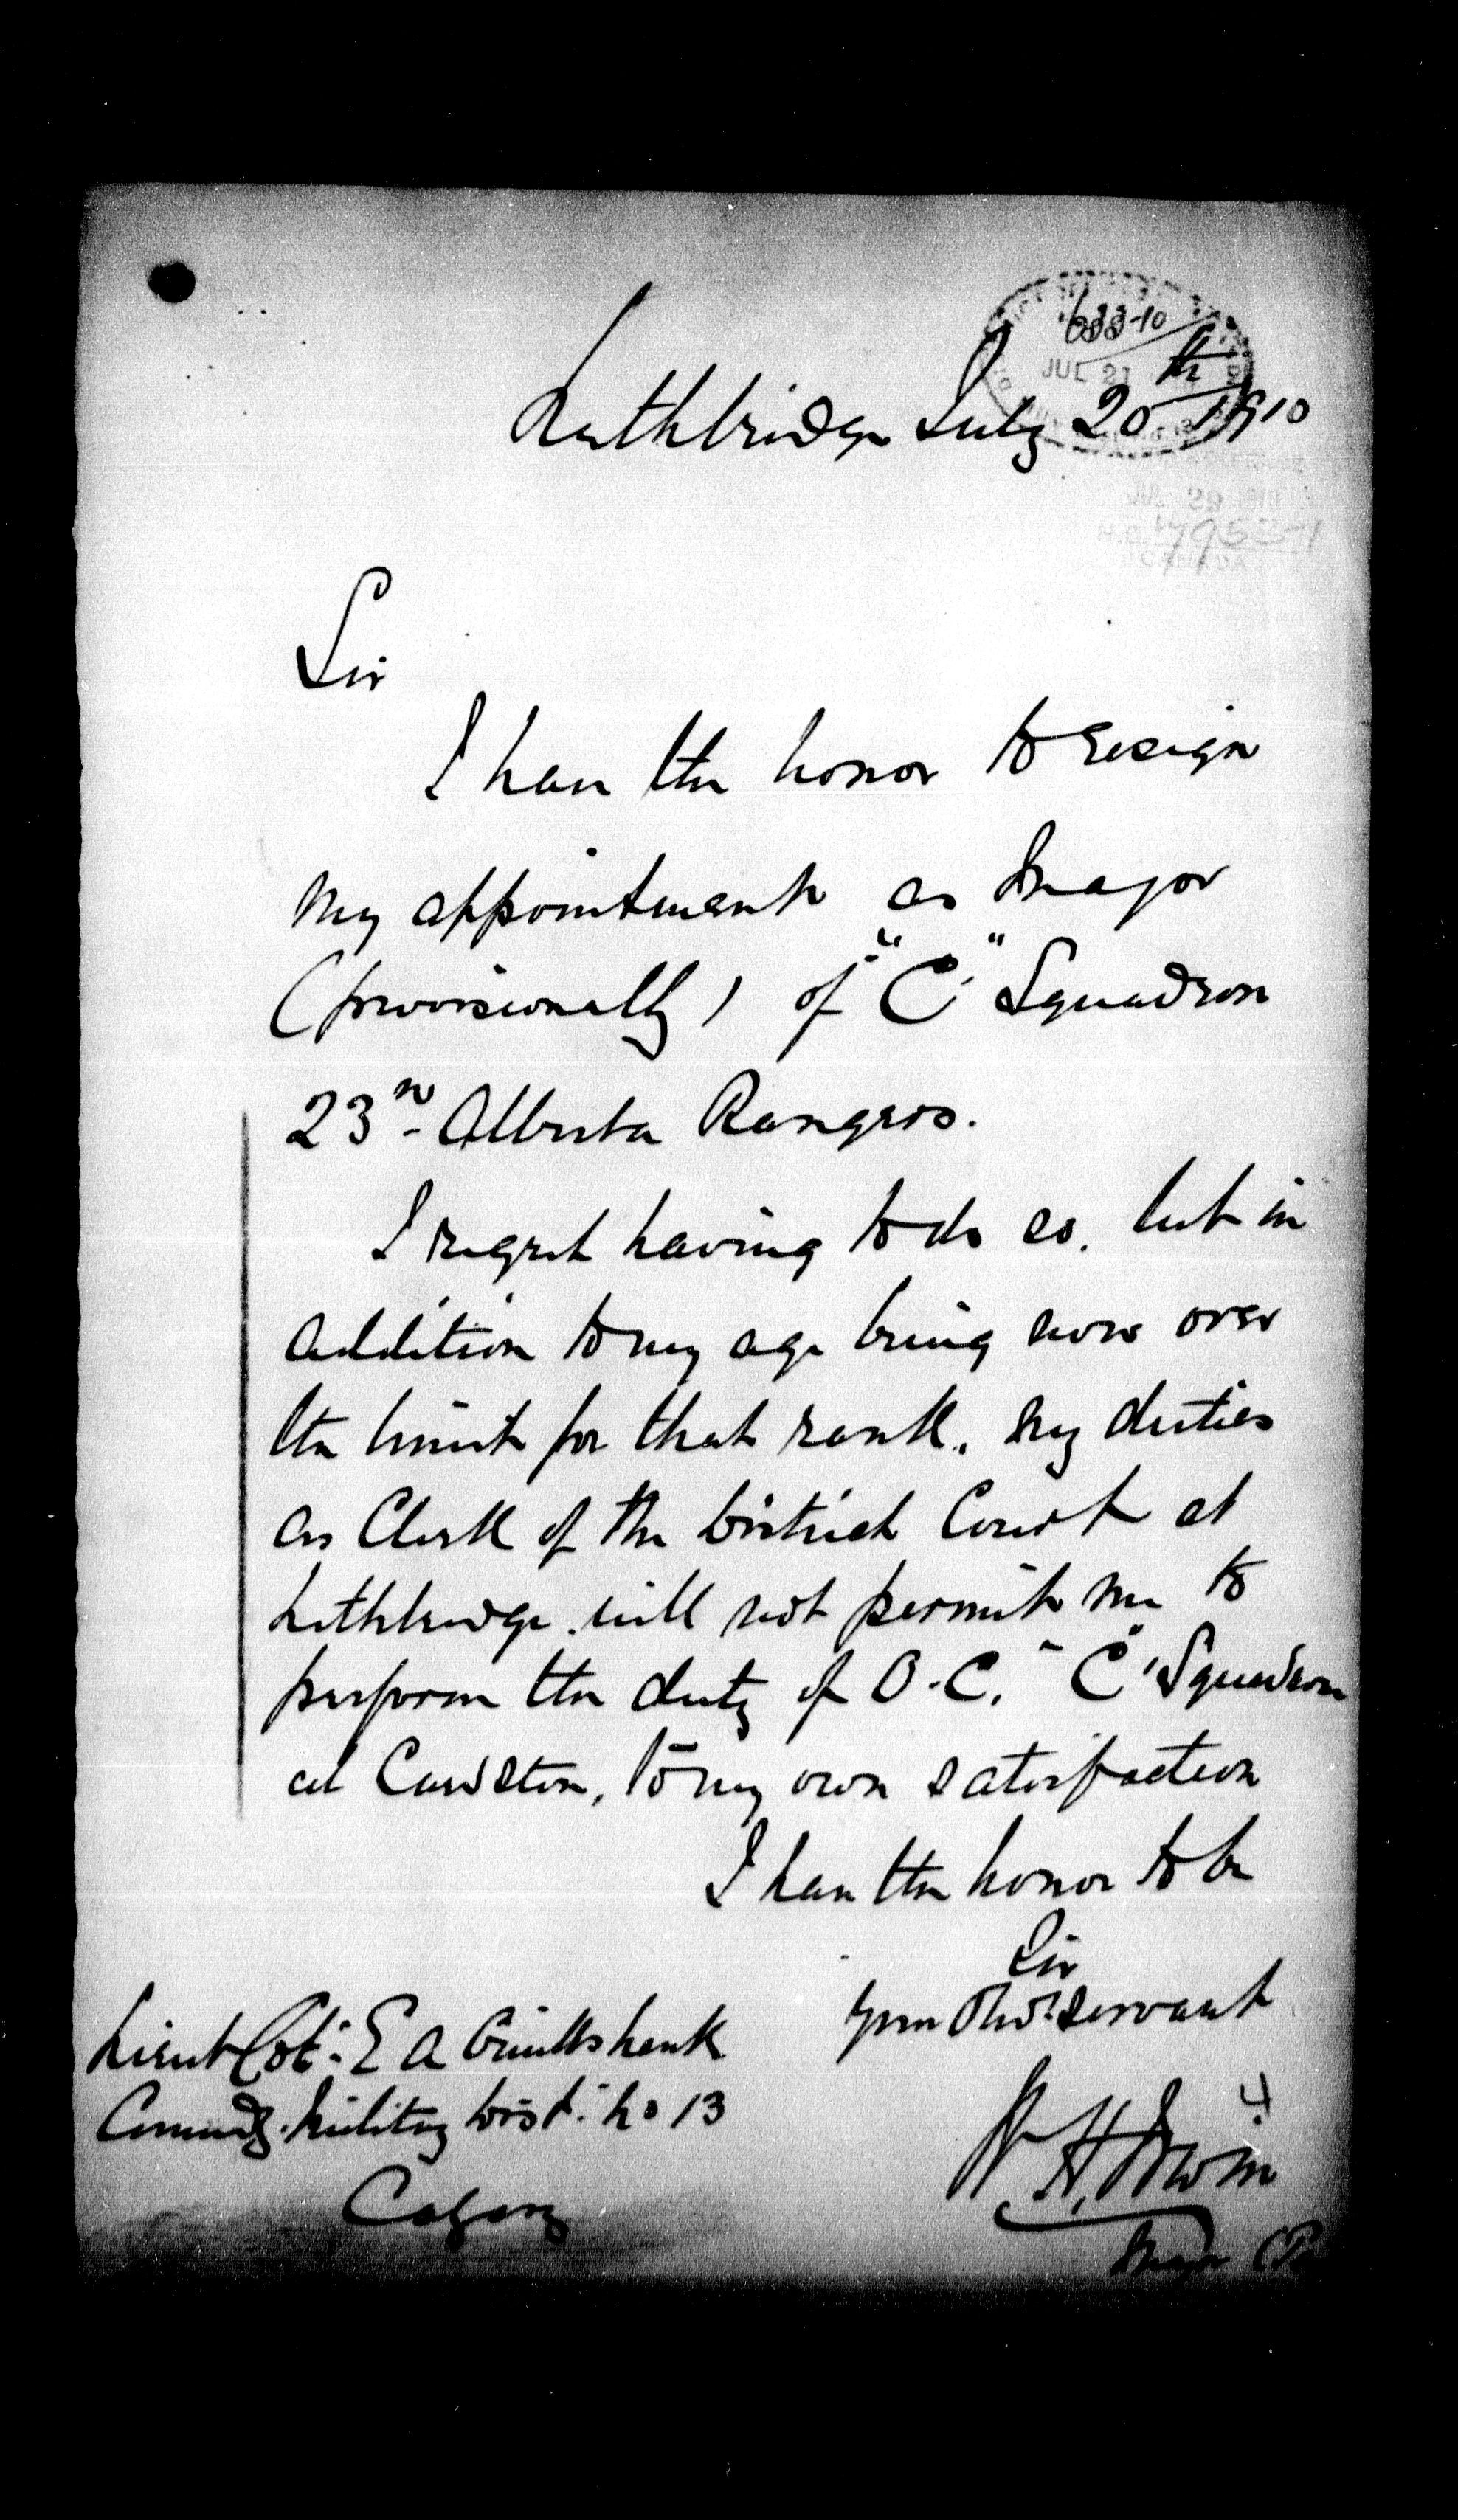 633-10
JUL 21
Lethbridge July 20th 1910
JUL 29 1910
CANADA
Sir
I have the honor to resign
my appointment as Major
(provisionally) of "C" Squadron
23rd Alberta Rangers.
I regret having to do so, but in
addition to my age being now over
the limit for that rank, my duties
as Clerk of the District Court at
Lethbridge will not permit me to
perform the duty of O.C. "C" Squadron
at Cardston, to my own satisfaction
I have the honor to be
Sir
Your Obdt. servant
Lieut Col. E A Cruikshank
Comndg. Military Dist. No 13
Calgary
Major (P